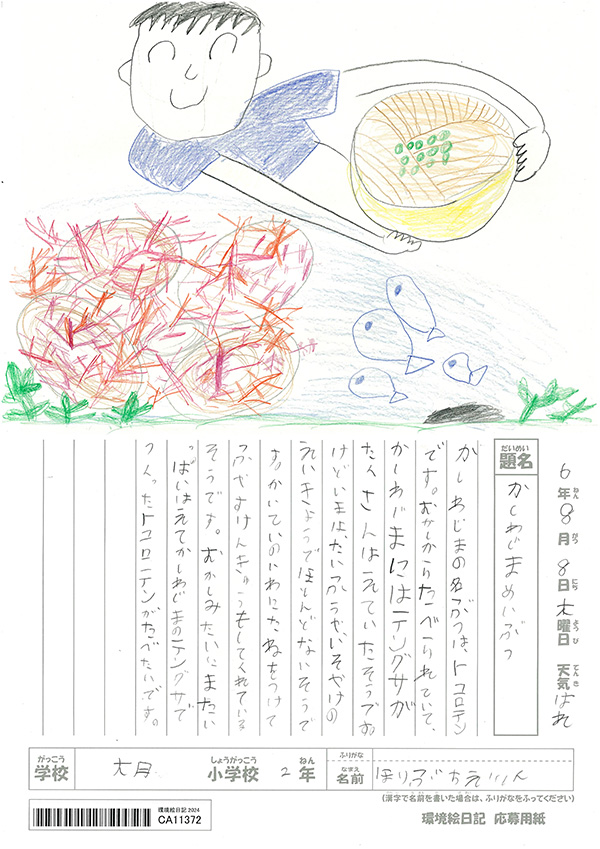 6年8月8日木曜日 天気はれ
ねん がつ にち ようび てんき
だいめい
題名
かしわじまめいぶつ
かしわじまの名ぶつは、トコロテン
です。むかしからたべられていて、
かしわじまにはテングサが
たくさんはえていたそうです。
けどいまは、たいふうや、いそやけの
えいきょうでほとんどないそうで
す。かいていのいわにたねをつけて
ふやすけんきゅうもしてくれている
そうです。むかしみたいにまたい
っぱいはえてかしわじまのテングサで
つくったトコロテンがたべたいです。
がっこう しょうがっこう ねん
学校 大月 小学校 2年
ふりがな
なまえ
名前
(漢字で名前を書いた場合は、ふりがなをふってください)
環境絵日記2024
CA11372
環境絵日記 応募用紙